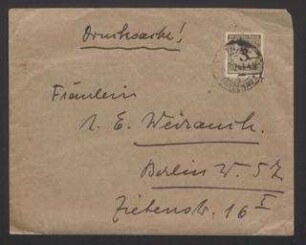 Drucksache!
Fräulein
E. Weirauch.
Berlin W. 57
Zietenstr. 16 I